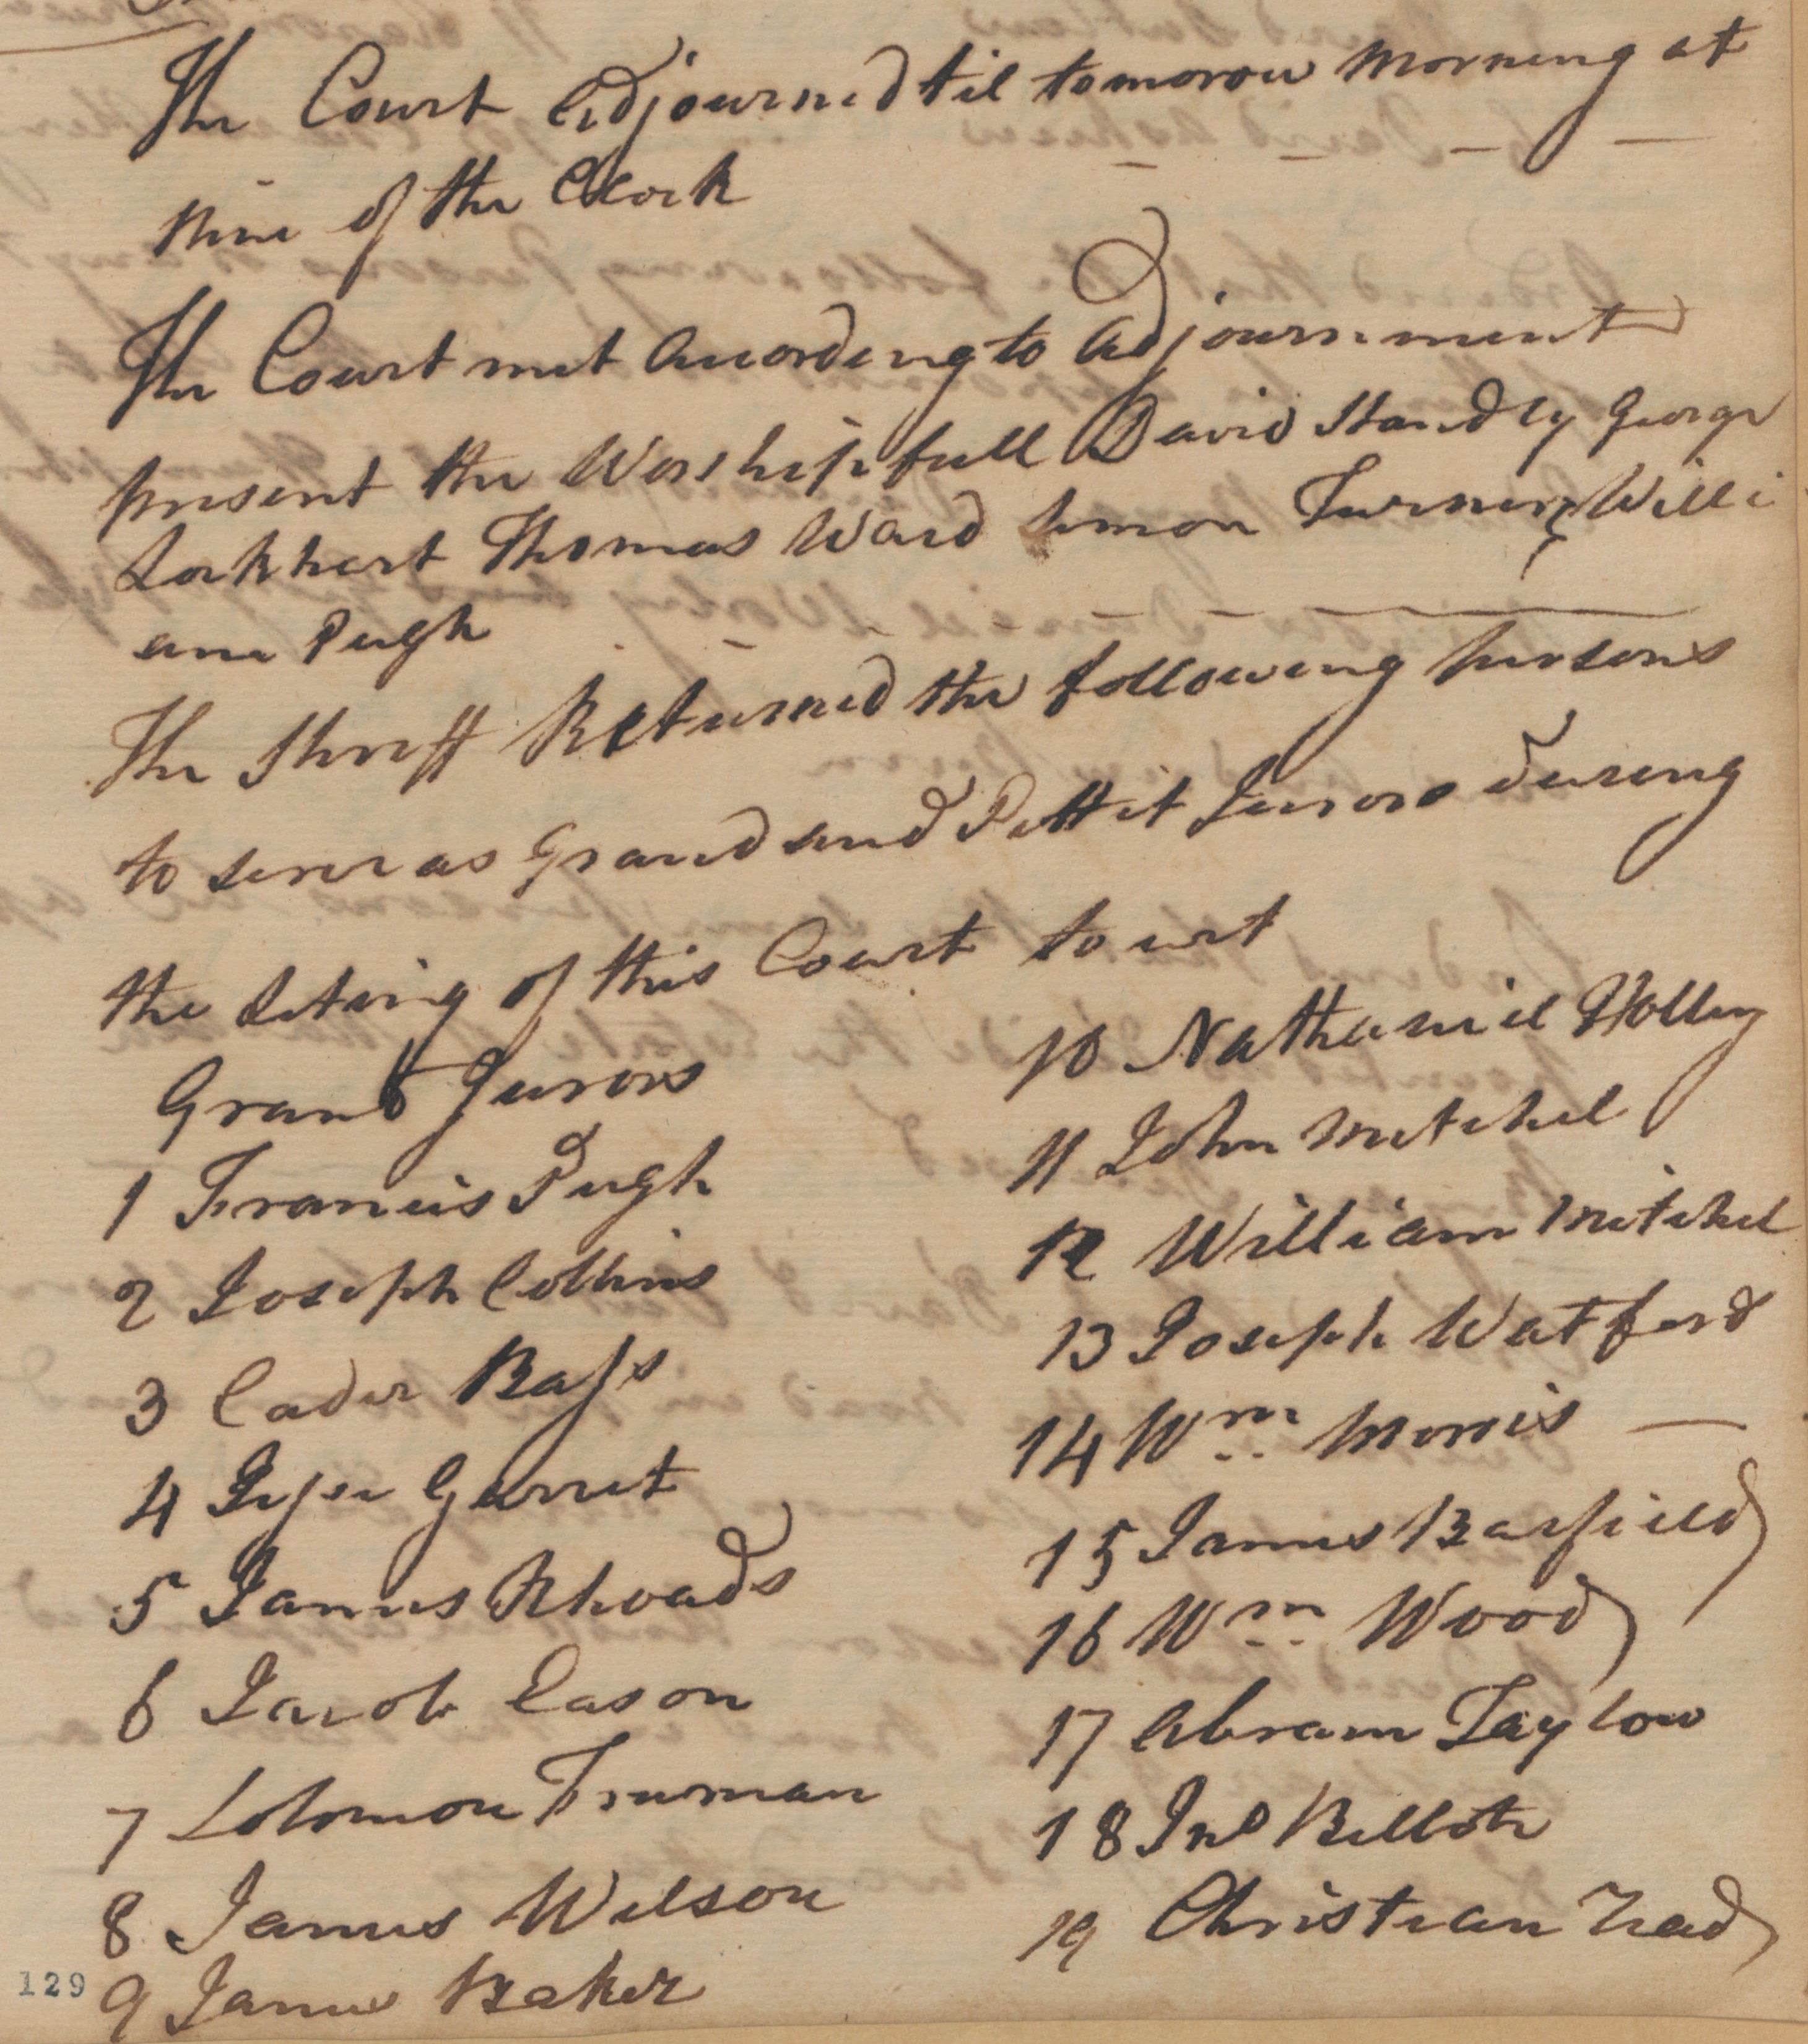 The Court Adjourned til tomorow Morning at
Nine of the Clock
The Court met According to Adjournment
present the Worshipfull David Standly George
Lockhart Thomas Ward Simon Turner, Willi
am Pugh
The Shreff Returned the following persons
to serve as Grand and Pettit Jurors during
the Siting of this Court to wit
Grand Jurors
1 Francis Pugh
2 Joseph Collins
3 Cader Bass
4 Jesse Garret
5 James Rhoads
6 Jacob Eason
7 Solomon Freeman
8 James Wilson
9 James Baker
10 Nathaniel Holley
11 John Mitchel
12 William Mitchel
13 Joseph Watford
14 Wm Morris
15 James Barfield
16 Wm Wood
17 Abram Taylow
18 Jno Billote
19 Christian
129